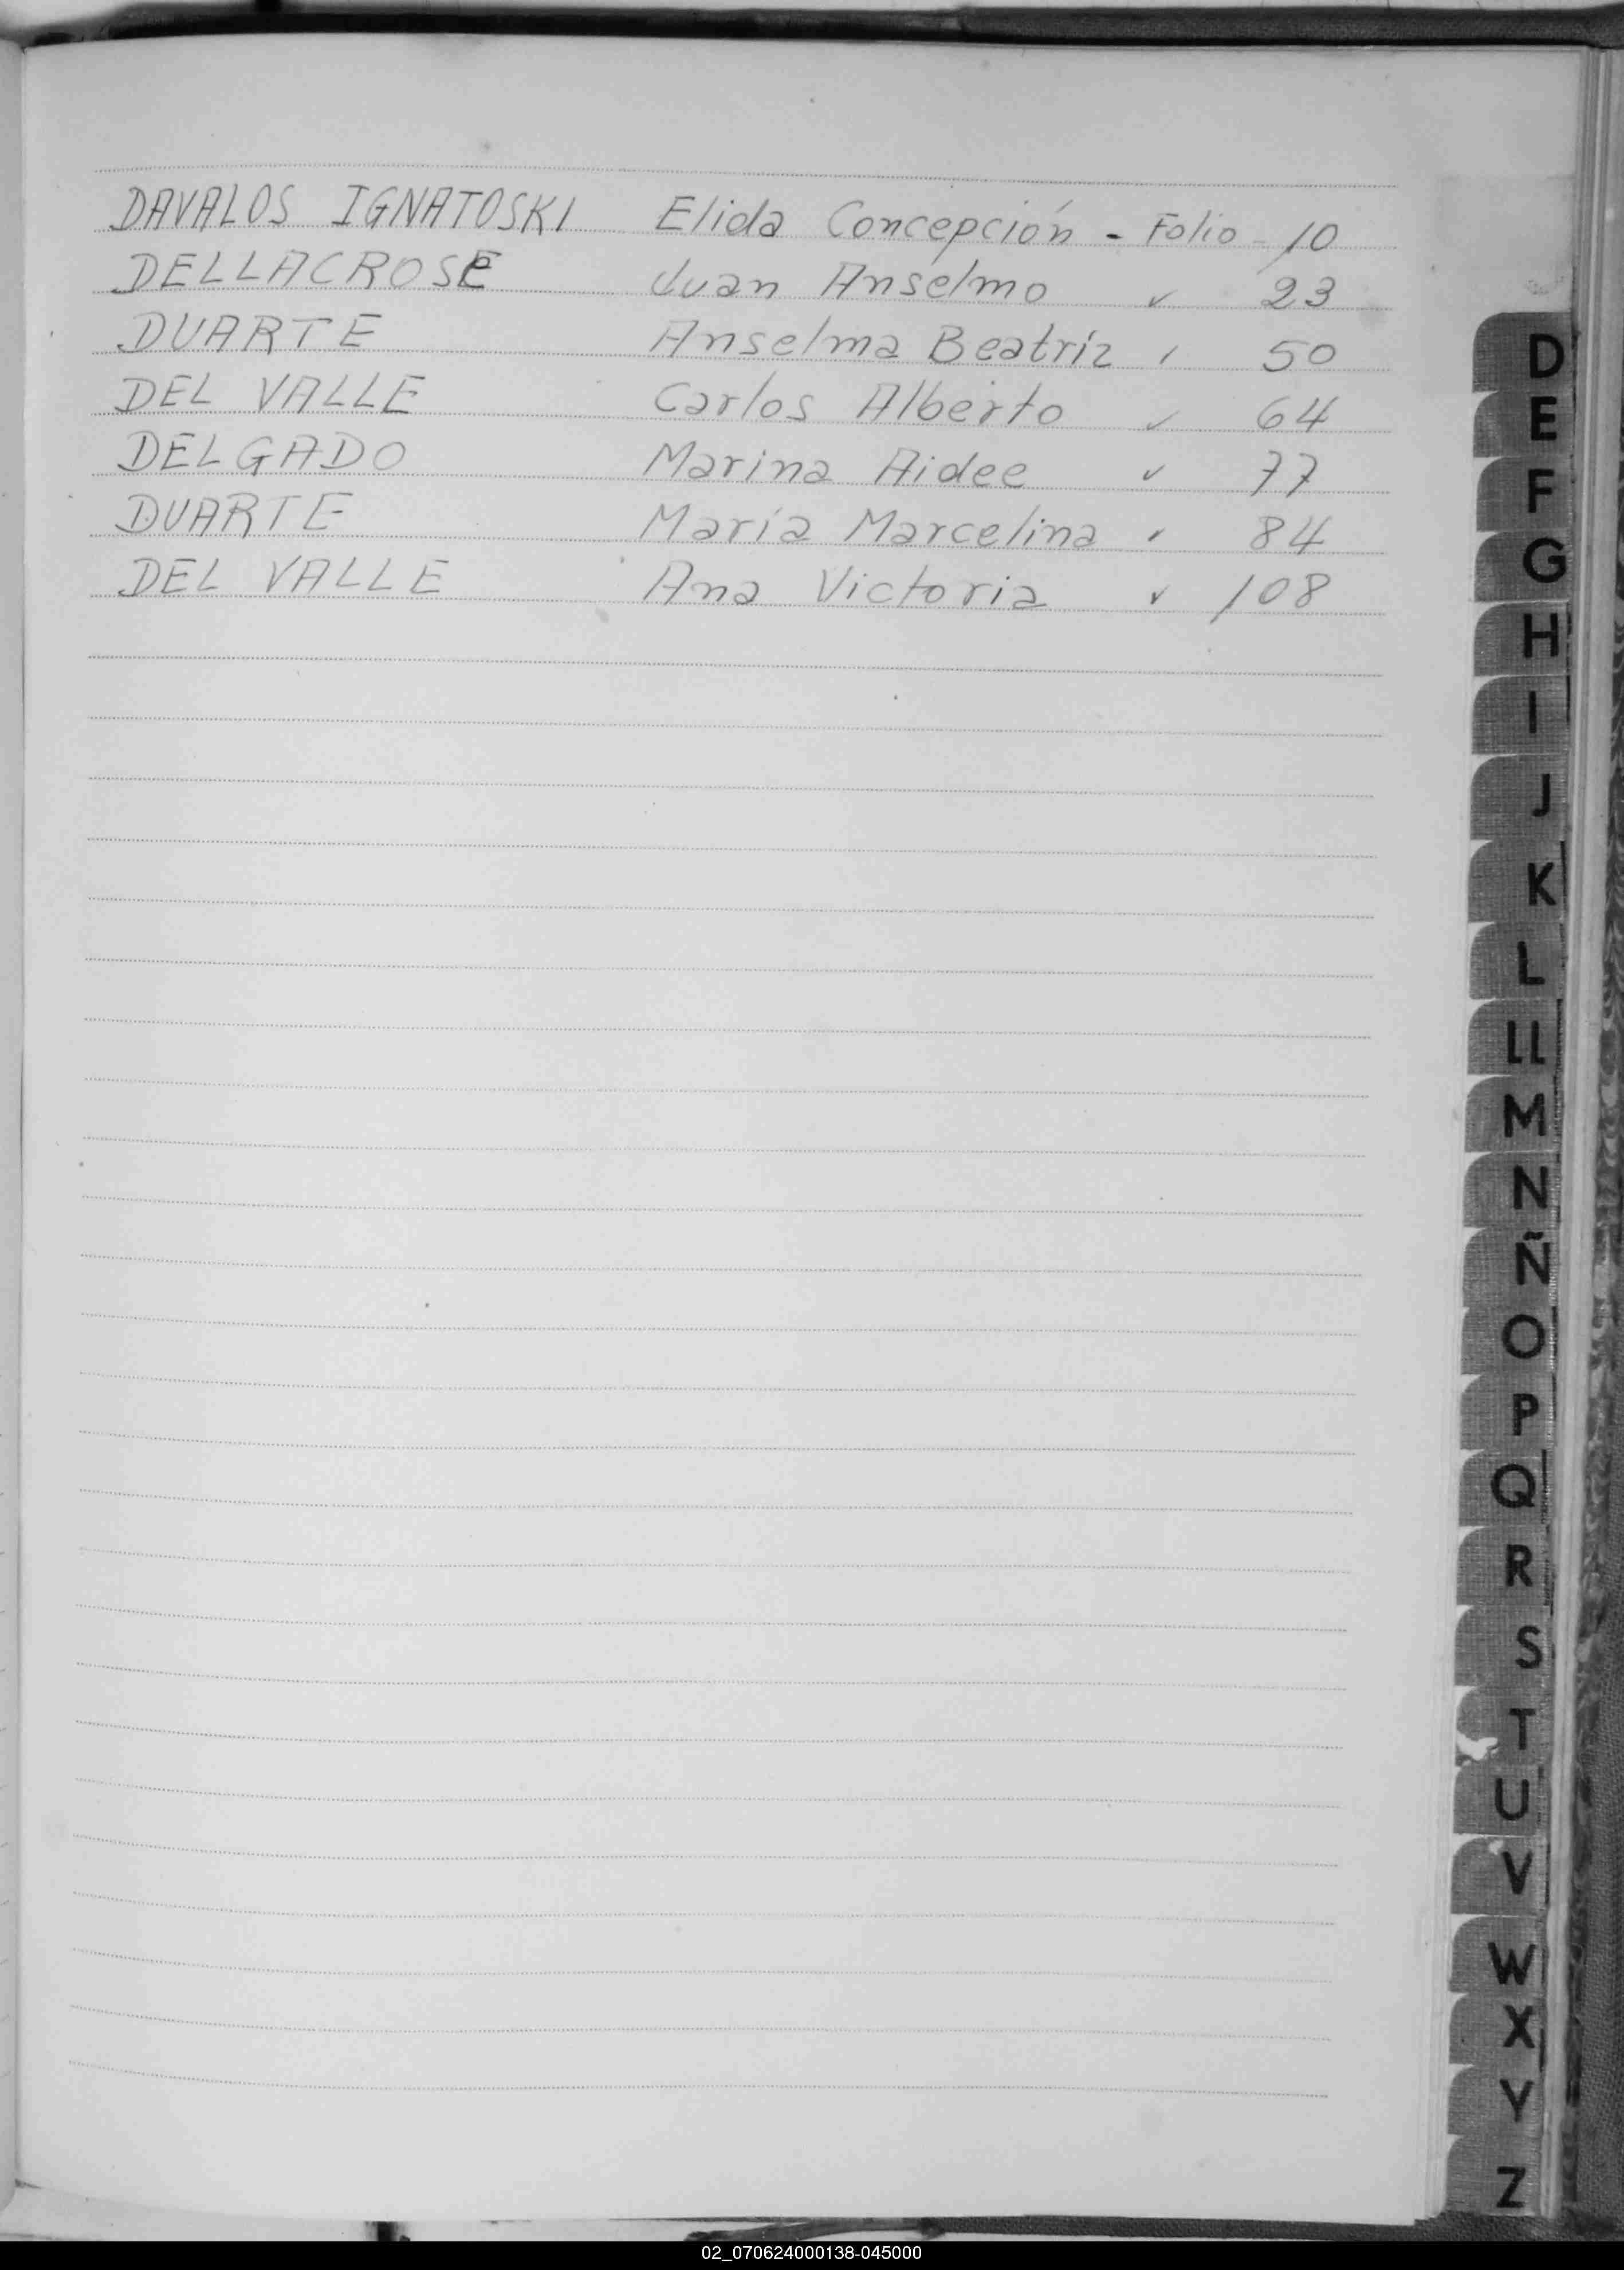 DAVALOS IGNATOSKI Elida Concepción - Folio - 10
DELLACROSE Juan Anselmo ✓ 23
DUARTE Anselma Beatríz ✓ 50
DEL VALLE Carlos Alberto ✓ 64
DELGADO Marina Aidee ✓ 77
DUARTE María Marcelina ✓ 84
DEL VALLE Ana Victoria ✓ 108
D
E
F
G
H
I
J
K
L
LL
M
N
Ñ
O
P
Q
R
S
T
U
V
W
X
Y
Z
02_070624000138-045000